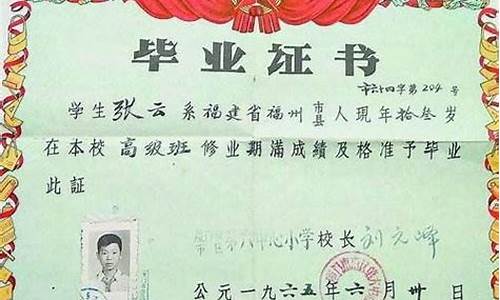 毕业证书
市六十四字第204号
学生张云系福建省福州市县人现年拾叁岁
在本校高级班修业期满成绩及格准予毕业
此証
第六中心小学校长刘元峰
公元一九六五年六月卅日